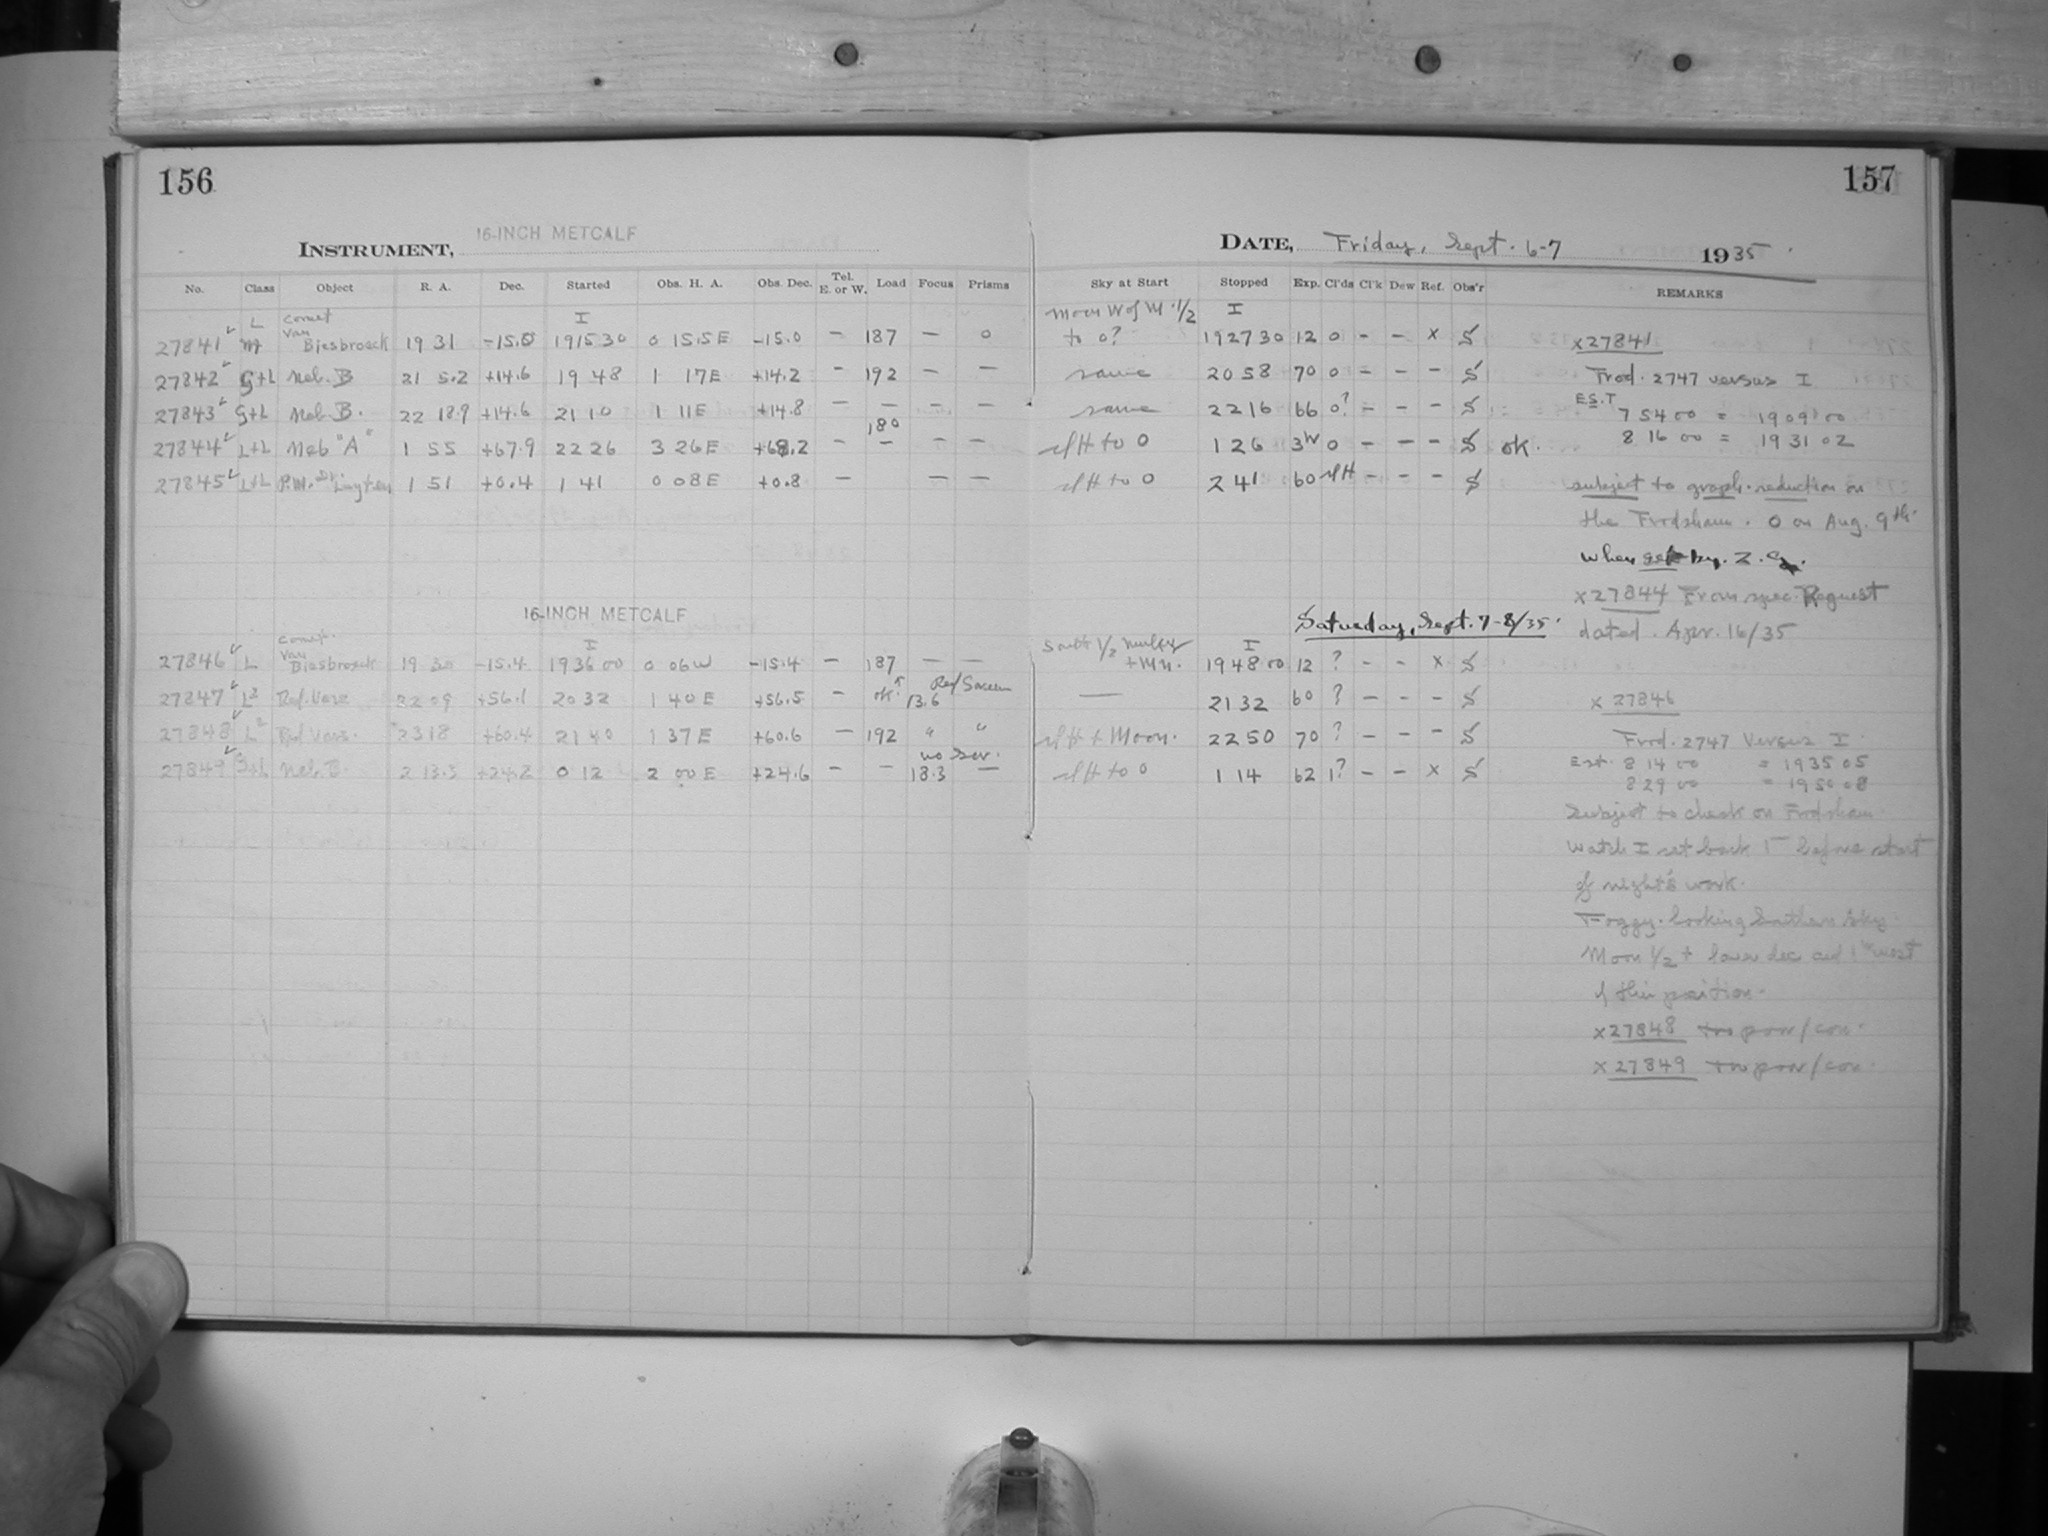 156
157
INSTRUMENT, 16-INCH METCALF
DATE, Friday, Sept. 6-7 1935
No. Class Object R. A. Dec. Started Obs. H. A. Obs. Dec. Tel. E. or W. Load Focus Prisms Sky at Start Stopped Exp. Cl'ds Cl'k Dew Ref. Obs'r REMARKS
L Comet I Moon W of M. 1/2 I
27841 Van Biesbroeck 19 31 -15.0 19 15 30 0 15.5E -15.0 - 187 - 0 to 0? 19 27 30 12 0 - - x S x27841
27842 G+L Neb. B 21 5.2 +14.6 19 48 1 17E +14.2 - 192 - - same 20 58 70 0 - - - S Frod. 2747 versus I
27843 G+L Neb. B. 22 18.9 +14.6 21 10 1 11E +14.8 - - - - same 22 16 66 0? - - - S E.S.T 7 54 00 = 19 09 00
180
27844 L+L Neb "A" 1 55 +67.9 22 26 3 26E +68.2 - - - - to 0 1 26 3 0 - - - S ok. 8 16 00 = 19 31 02
27845 L+L P.M. Dr Luyten 1 51 +0.4 1 41 0 08E +0.8 - - - to 0 2 41 60 - - - S subject to graph. reduction on
the Frodsham. 0 on Aug. 9th.
when set by. Z.
x27844 From spec. Request
16-INCH METCALF Saturday, Sept. 7-8/35. dated. Apr. 16/35
Comet I I
27846 L Van Biesbroeck 19 30 -15.4 19 36 00 0 06W -15.4 - 187 - - 19 48 00 12 ? - - x S
27847 L2 Red. Vars 22 09 +56.1 20 32 1 40E +56.5 - ok? 13.6 Red Screen - 21 32 60 ? - - - S x 27846
27848 L2 Red Vars. 23 18 +60.4 21 40 1 37E +60.6 - 192 " " + Moon. 22 50 70 ? - - - S Frod. 2747 Versus I.
27849 G+L Neb. B. 2 13.5 +24.2 0 12 2 00E +24.6 - - no Scr. 18.3 - to 0 1 14 62 1? - - x S Est. 8 14 00 = 19 35 05
8 29 00 = 19 50 08
Subject to check on Frodsham.
Watch I set back 1 before start
of night's work.
Foggy. looking Southern Sky.
Moon 1/2 + lower dec and 1 west
of this position.
x27848
x27849